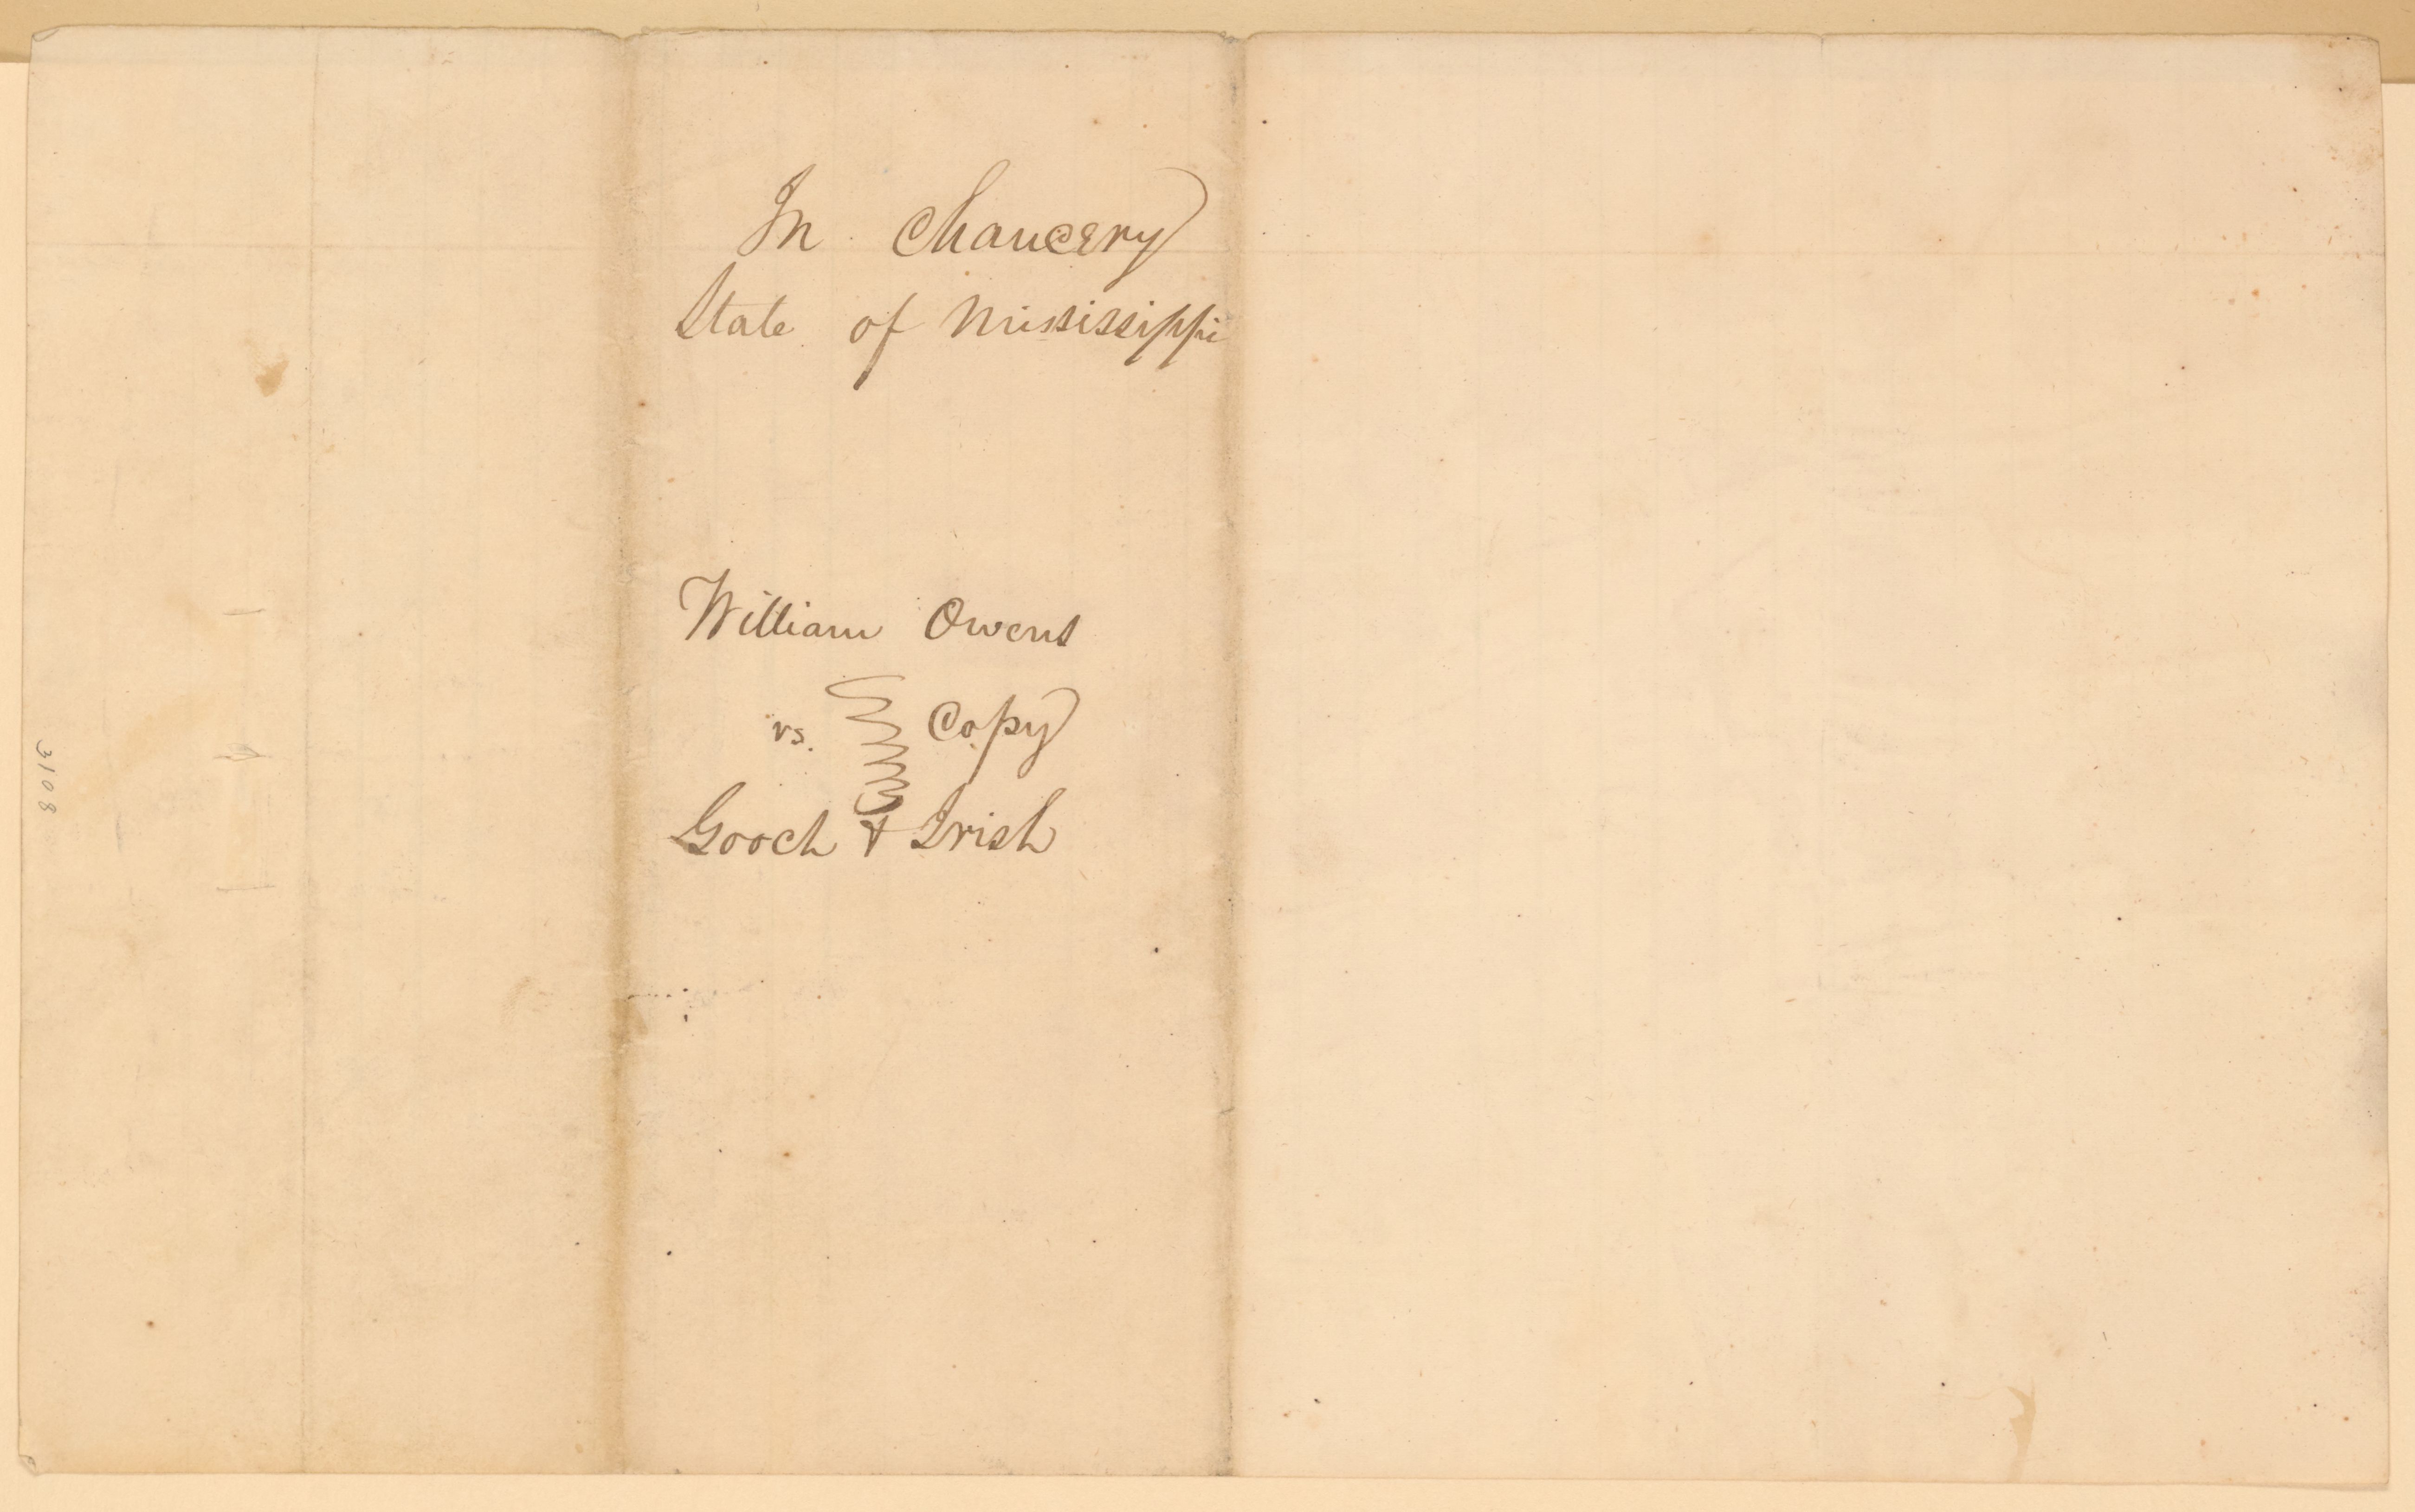 In Chancery
State of Mississippi
William Owens
vs. Copy
Gooch & Irish
3108